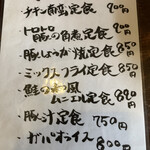 チキン南蛮定食 900円
トロトロ豚の角煮定食 900円
豚しょうが焼定食 850円
ミックスフライ定食 850円
鮭の和風ムニエル定食 890円
豚汁定食 750円
ガパオライス 800円